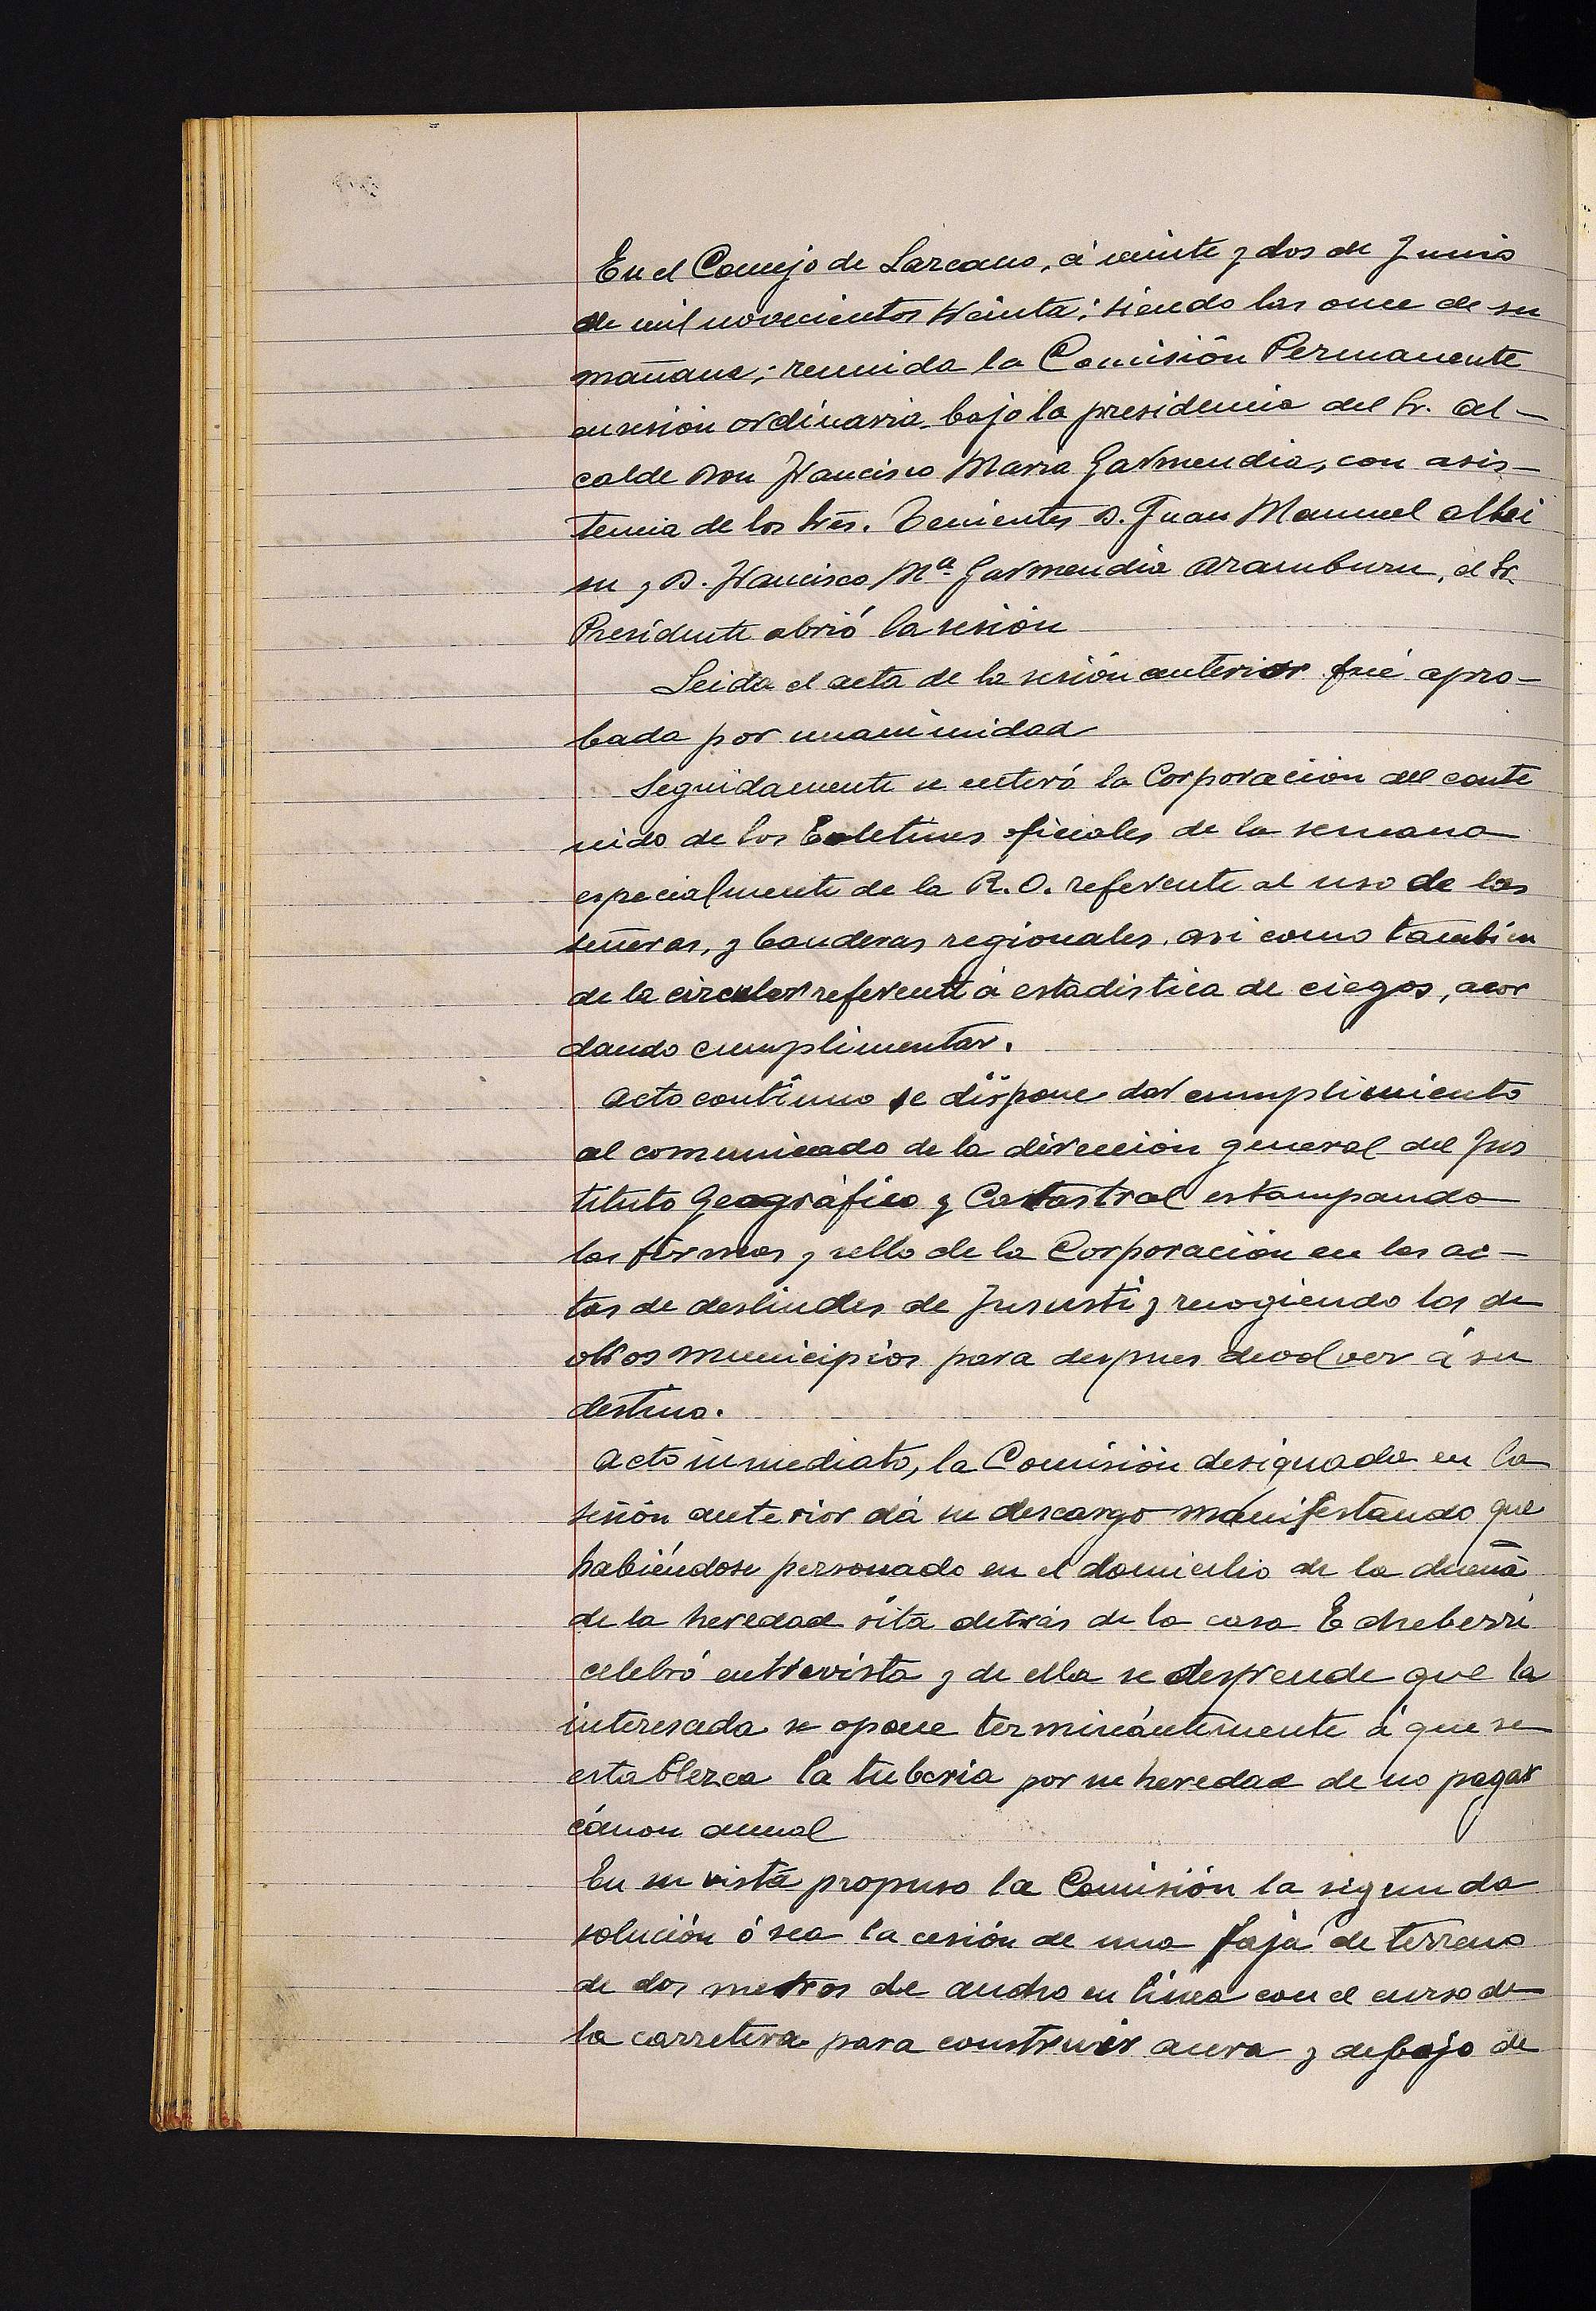 En el Concejo de Lazcano, á veinte y dos de Junio
de mil novecientos treinta; siendo las once de su
mañana; reunida la Comisión Permanente
en sesión ordinaria bajo la presidencia del Sr. Al-
calde Don Francisco Maria Garmendia, con asis-
tencia de los Srēs. Tenientes D. Juan Manuel Albi
su y D. Francisco Mª Garmendia Aramburu, el Sr.
Presidente abrió la sesión
Leida el acta de la sesión anterior fué apro-
bada por unanimidad
Seguidamente se enteró la Corporación del conte
nido de los Boletines oficiales de la semana
especialmente de la R.O. referente al uso de las
señeras, y banderas regionales, asi como tambien
de la circular referente á estadistica de ciegos, acor
dando cumplimentar.
Acto continuo se dispone dar cumplimiento
al comunicado de la dirección general del Ins
tituto Geográfico y Catastral estampando
las firmas y sello de la Corporación en las ac-
tas de deslindes de Jususti y recogiendo las de
otros municipios para despues devolver á su
destino.
Acto inmediato, la Comisión designada en la
sesión anterior dá su descargo manifestando que
habiéndose personado en el domicilio de la dueña
de la heredad sita detrás de la casa Echeberri
celebró entrevista y de ella se desprende que la
interesada se opone terminántemente á que se
establezca la tuberia por su heredad de no pagar
cánon anual
En su vista propuso la Comisión la segunda
solución ó sea la cesión de una faja de terreno
de dos metros de ancho en linea con el curso de
la carretera para construir acera y debajo de